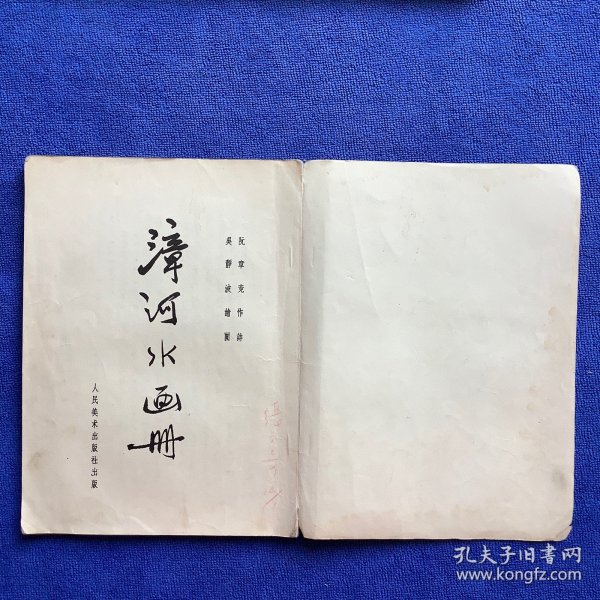 阮章竞作詩
吳靜波繪圖
漳河水画册
人民美术出版社出版
孔夫子旧書网
www.kongfz.com